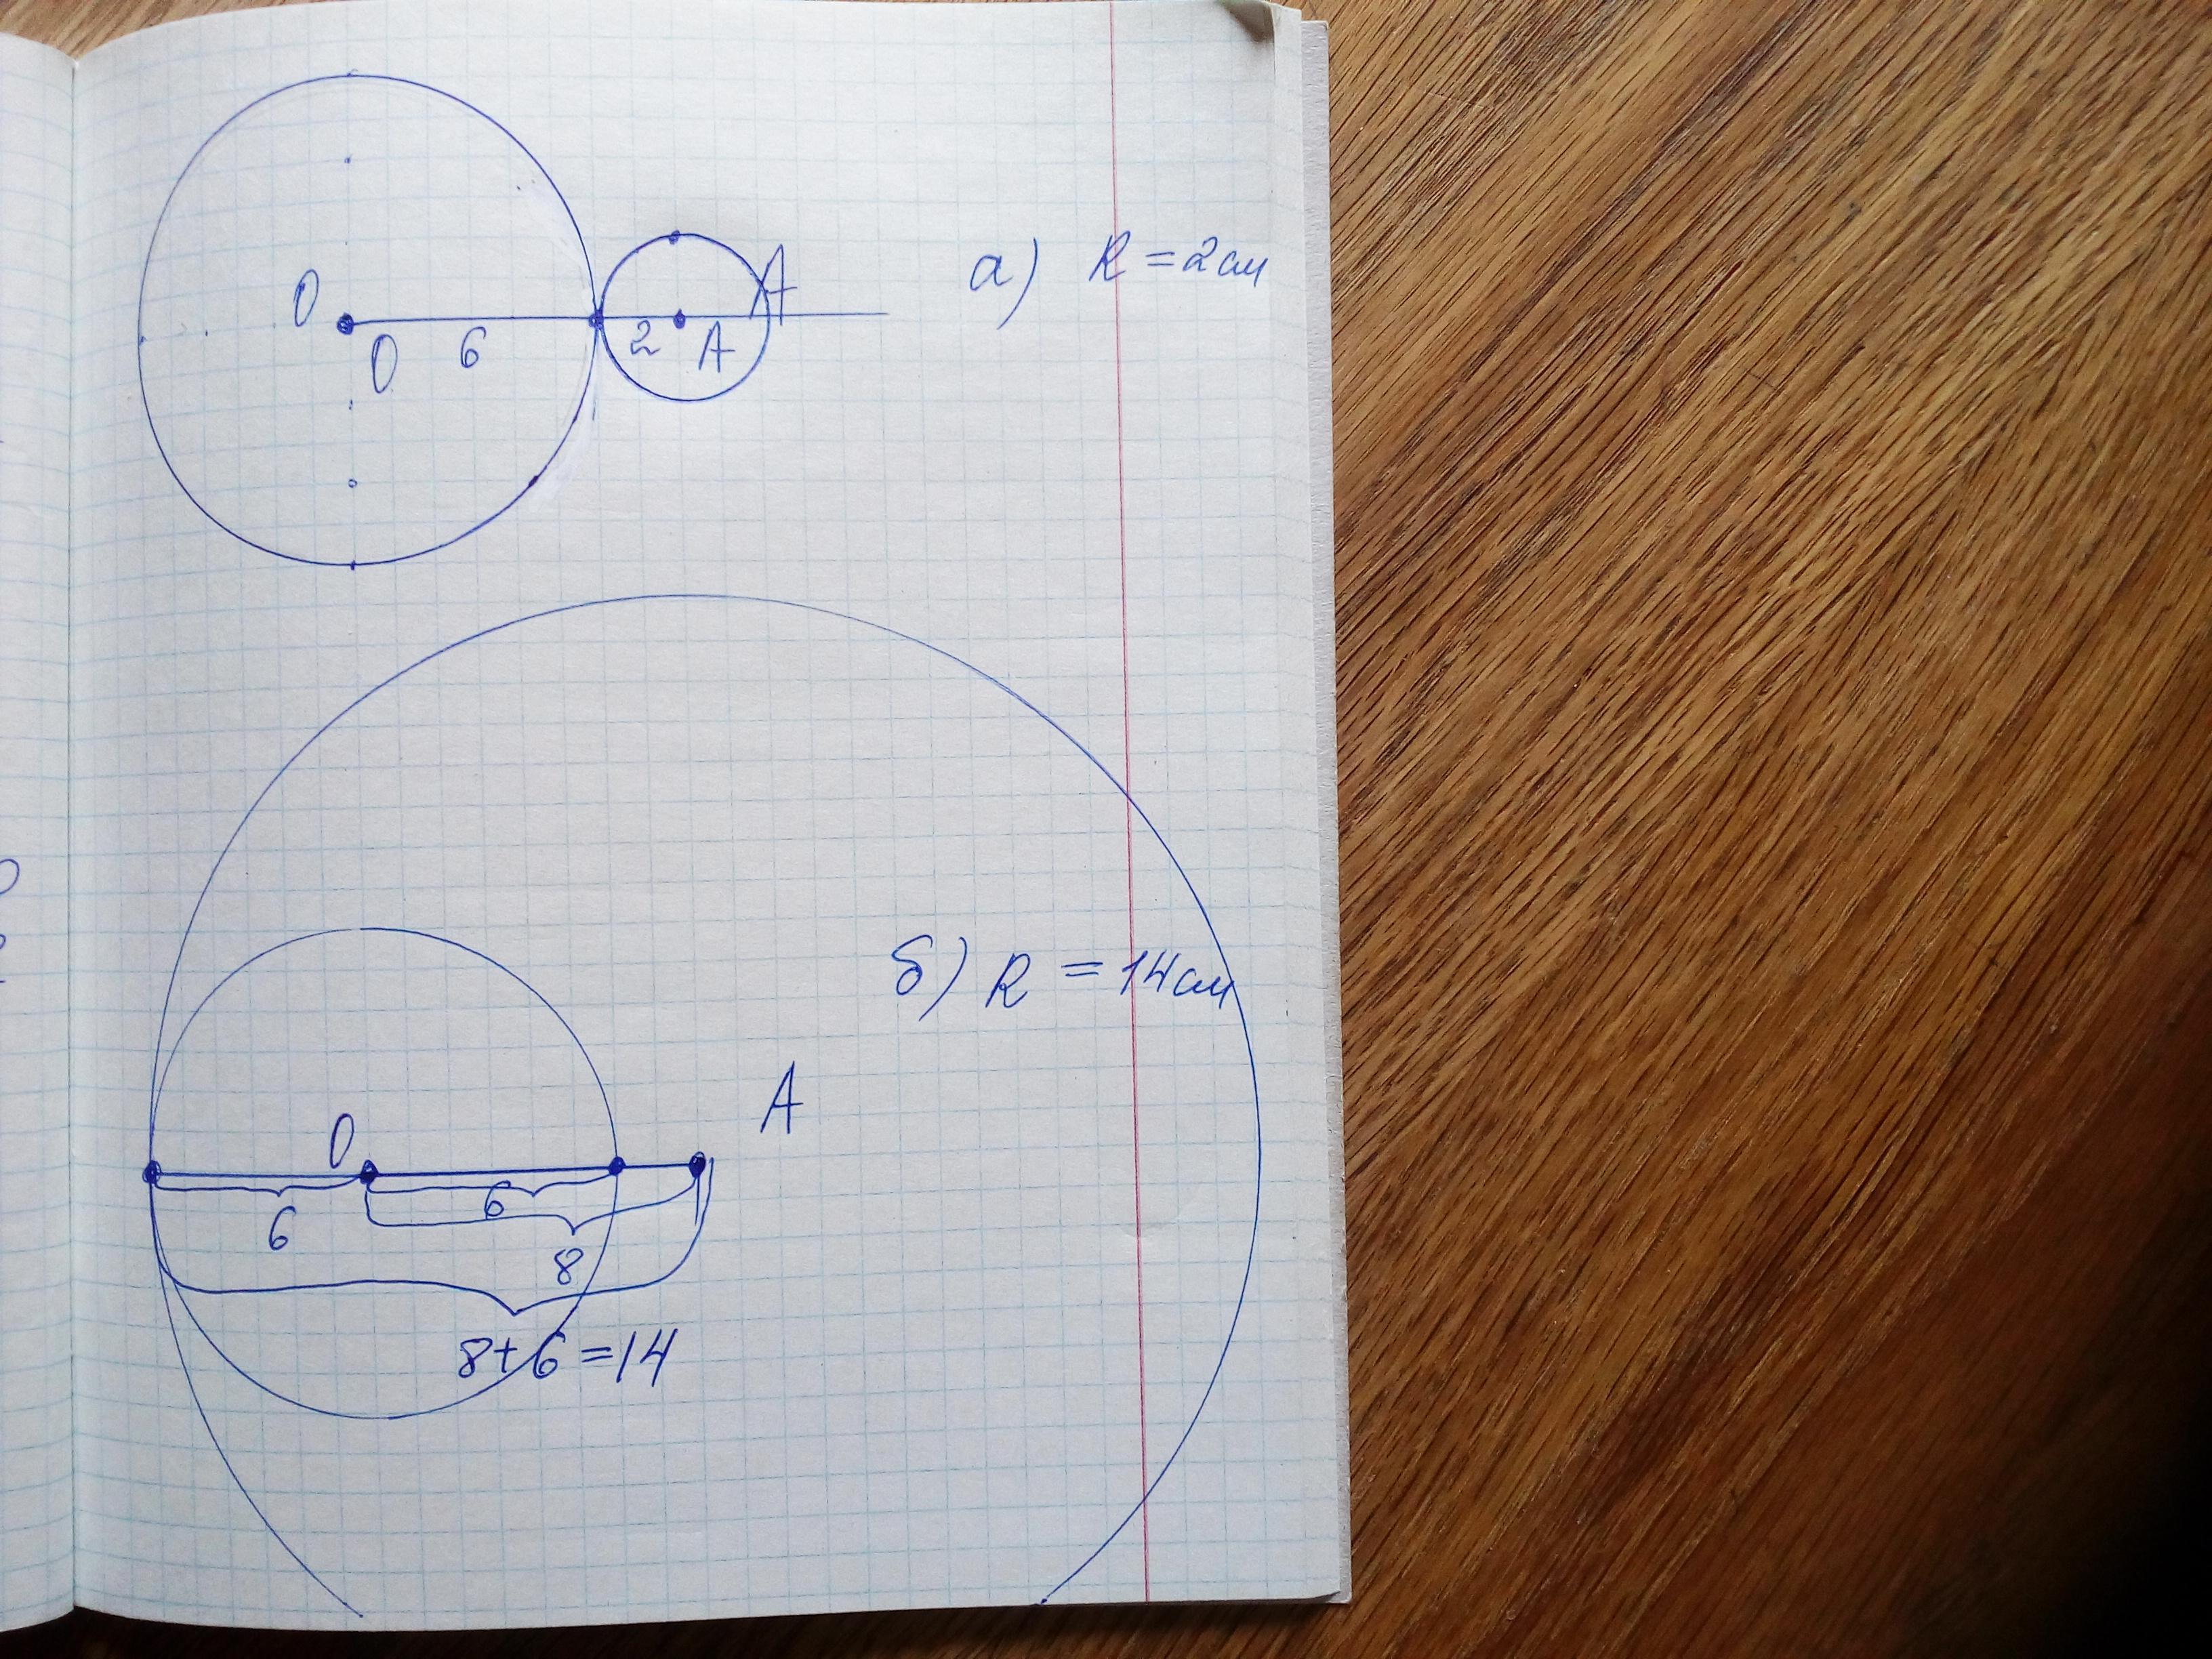 А
а) R = 2см
О
О 6 2 А
б) R = 14см
А
О
6 6
8
8+6=14